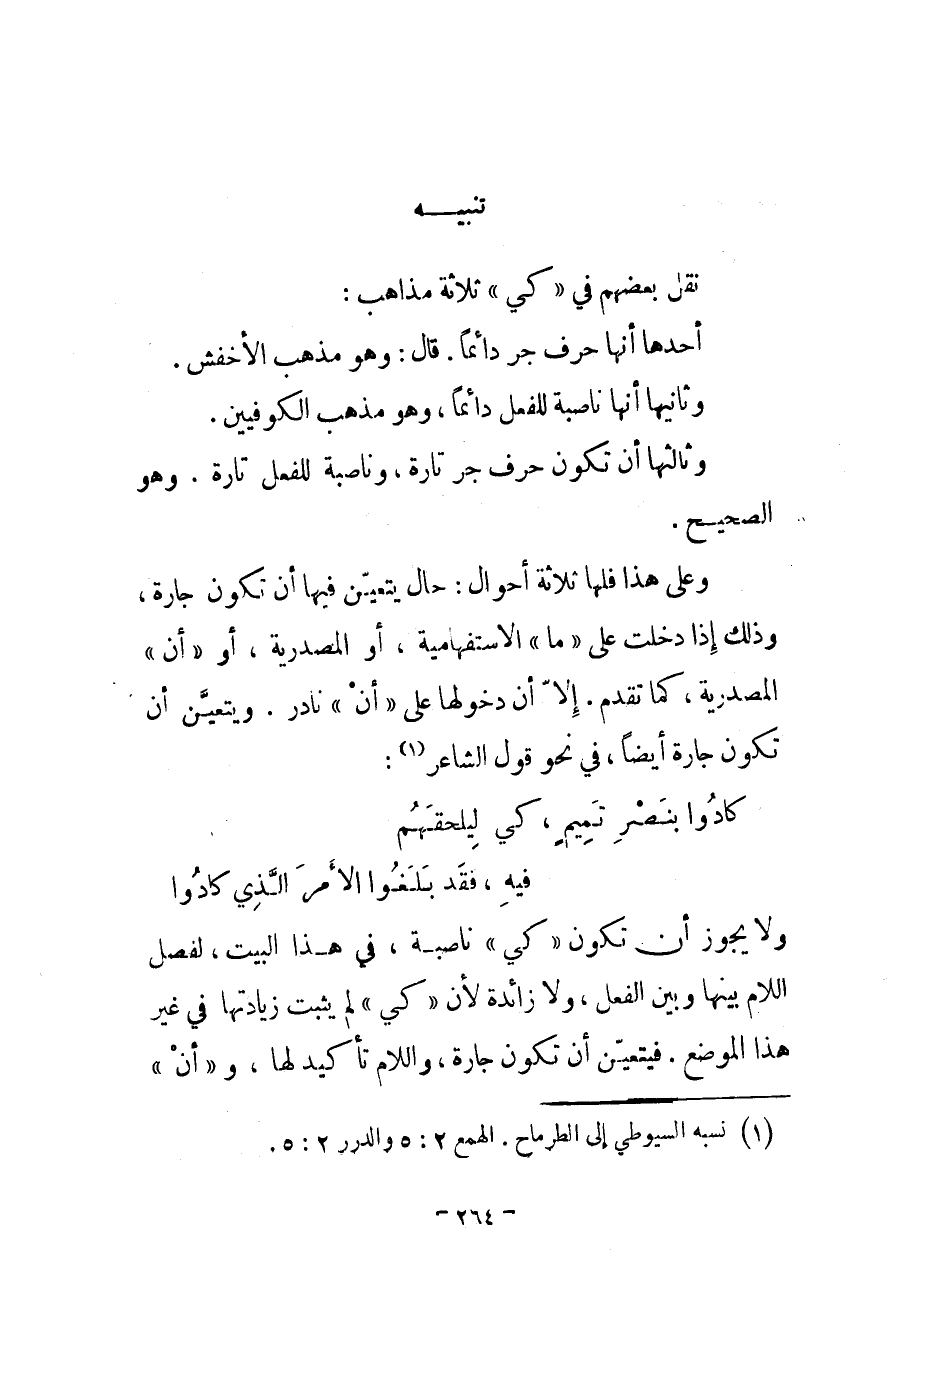 تنبيـــه
نقل بعضهم في « كي » ثلاثة مذاهب :
أحدها أنها حرف جر دائماً . قال : وهو مذهب الأخفش .
وثانيها أنها ناصبة للفعل دائماً ، وهو مذهب الكوفيين .
وثالثها أن تكون حرف جر تارة ، وناصبة للفعل تارة . وهو
الصحيح .
وعلى هذا فلها ثلاثة أحوال : حال يتعيّن فيها أن تكون جارة ،
وذلك إِذا دخلت على « ما » الاستفهامية ، أو المصدرية ، أو « أن »
المصدرية ، كما تقدم . إِلاّ أن دخولها على « أنْ » نادر . ويتعيَّن أن
تكون جارة أيضاً ، في نحو قول الشاعر (١) :
كادُوا بنَصْرِ تَمِيمٍ ، كي لِيلحقَهُم
فيهِ ، فقَد بَلَغُوا الأَمرَ الَّذِي كادُوا
ولا يجوز أن تكون « كي » ناصبة ، في هذا البيت ، لفصل
اللام بينها وبين الفعل ، ولا زائدة لأن « كي » لم يثبت زيادتها في غير
هذا الموضع . فيتعيّن أن تكون جارة ، واللام تأكيد لها ، و « أنْ »
(١) نسبه السيوطي إلى الطرماح . الهمع ٢ : ٥ والدرر ٢ : ٥ .
- ٢٦٤ -